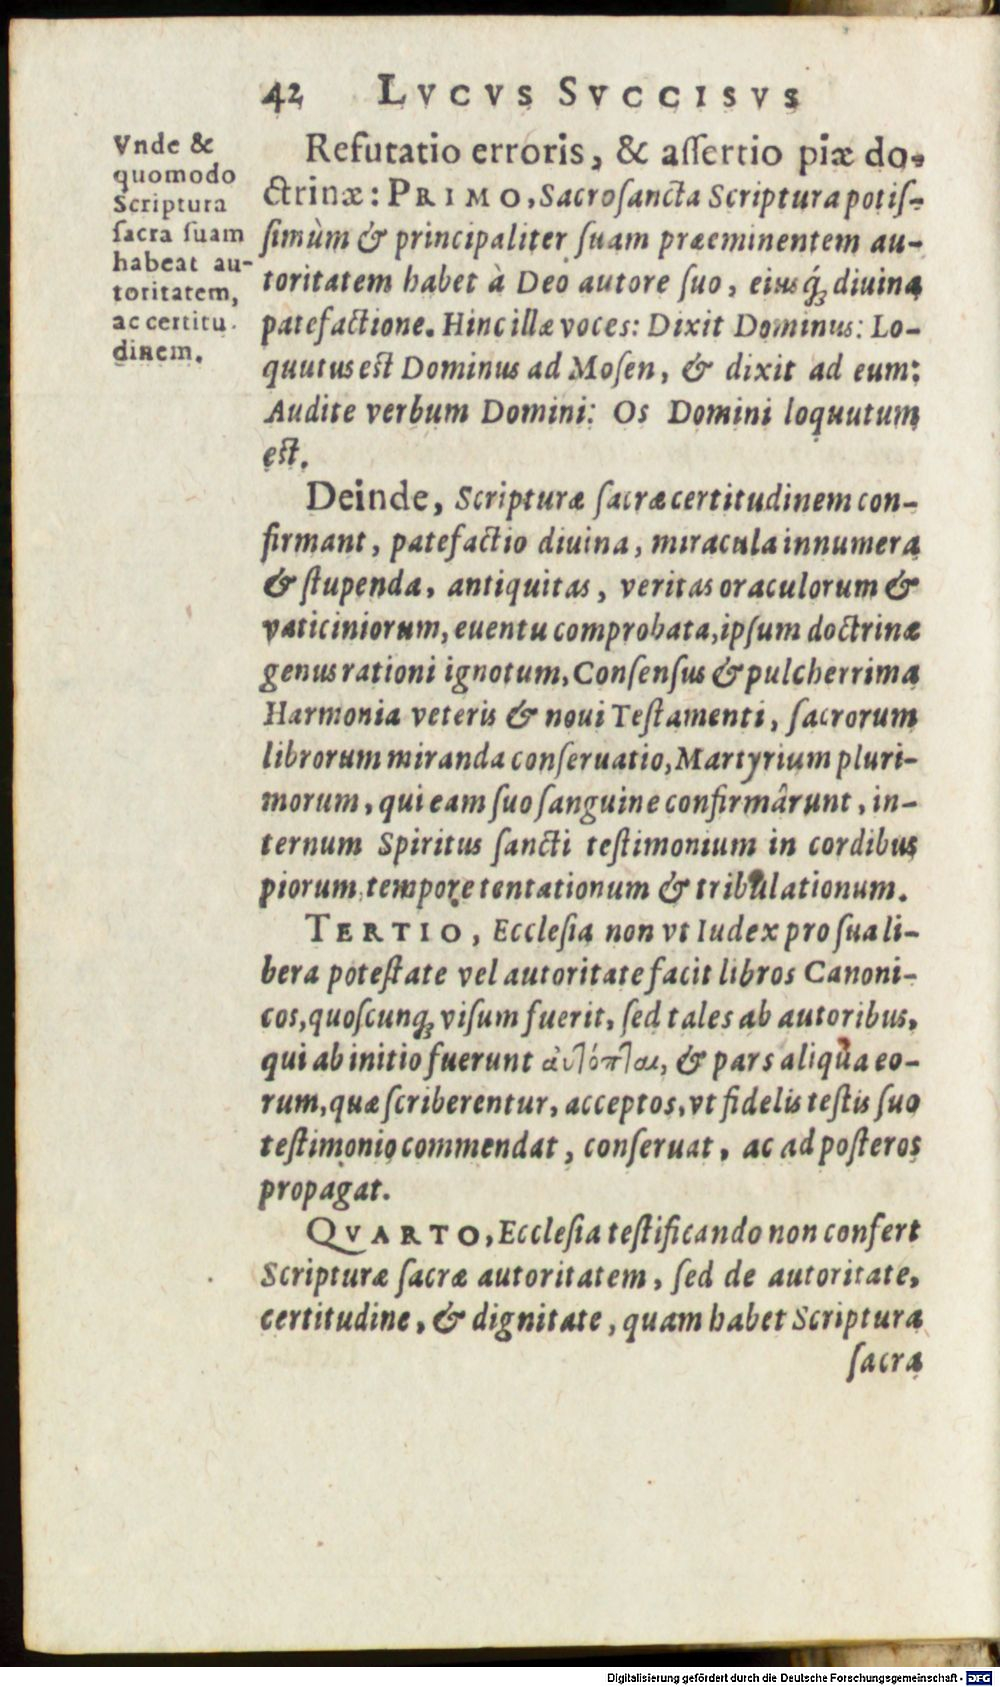 42 LVCVS SVCCISVS
Vnde &
quomodo
Scriptura
ſacra ſuam
habeat au-
toritatem,
ac certitu-
dinem.
Refutatio erroris, & aſſertio piæ do-
ctrinæ: PRIMO, Sacroſancta Scriptura potiſ-
ſimùm & principaliter ſuam præeminentem au-
toritatem habet à Deo autore ſuo, eiusq́; diuina
patefactione. Hinc illæ voces: Dixit Dominus: Lo-
quutus est Dominus ad Moſen, & dixit ad eum:
Audite verbum Domini: Os Domini loquutum
est.
Deinde, Scripturæ ſacræ certitudinem con-
firmant, patefactio diuina, miracula innumera
& ſtupenda, antiquitas, veritas oraculorum &
vaticiniorum, euentu comprobata, ipſum doctrinæ
genus rationi ignotum, Conſenſus & pulcherrima
Harmonia veteris & noui Teſtamenti, ſacrorum
librorum miranda conſeruatio, Martyrium pluri-
morum, qui eam ſuo ſanguine confirmârunt, in-
ternum Spiritus ſancti teſtimonium in cordibus
piorum tempore tentationum & tribulationum.
TERTIO, Eccleſia non vt Iudex pro ſua li-
bera poteſtate vel autoritate facit libros Canoni-
cos, quoſcunq; viſum fuerit, ſed tales ab autoribus,
qui ab initio fuerunt ἀυτόπται, & pars aliqua eo-
rum, quæ ſcriberentur, acceptos, vt fidelis teſtis ſuo
teſtimonio commendat, conſeruat, ac ad poſteros
propagat.
QVARTO, Eccleſia teſtificando non confert
Scripturæ ſacræ autoritatem, ſed de autoritate,
certitudine, & dignitate, quam habet Scriptura
ſacra
Digitalisierung gefördert durch die Deutsche Forschungsgemeinschaft - DFG